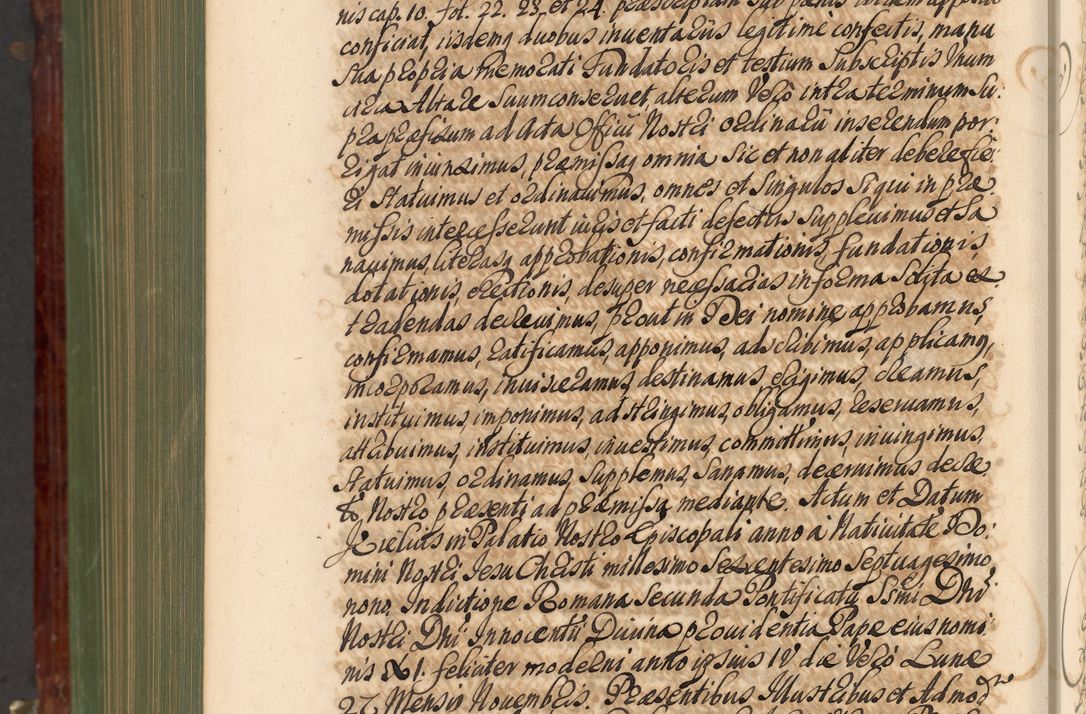 nis cap. 10. fol. 22. 23. et 24. præscriptam sub pænis
conficiat, iisdemq duobus inventariis legitime confectis, manu
sua propria memorati Fundatoris et testium subscriptis unum
circa Altare suum conseruet, alterum Vero intra terminum su:
præfixum ad Acta Officii Nostri ordinarii inserendum por:
rigat iniunximus, præmissaq omnia sic et non aliter debere fie:
ri statuimus et ordinauimus, omnes et singulos si qui in præ
missis intercesserunt iuris et facti defectus suppleuimus et sa
nauimus, literasq approbationis, confirmationis, fundationis,
dotationis, erectionis, desuper necessarias in forma solita et
tradendas decreuimus, prout in Dei nomine approbamus,
confirmamus, ratificamus, apponimus, adscribimus, applicamq,
incorporamus, inuisceramus, destinamus, erigimus, creamus,
instituimus, imponimus, adstringimus, obligamus, reseruamus,
attribuimus, instituimus, inuestimus, committimus, iniungimus,
statuimus, ordinamus, supplemus, sanamus, decernimus decre
to Nostro præsenti ad præmissa mediante. Actum et Datum
Kielciis in Palatio Nostro Episcopali anno a Natiuitate Do:
mini Nostri Jesu Christi millesimo sexcentesimo septuagesimo
nono, Indictione Romana secunda Pontificatus Ssmi Dni
Nostri Dni Innocentii Diuina prouidentia Papæ eius nomi:
nis XI. feliciter moderni anno ipsius IV die Vero Lunæ
27 Mensis Nouembris. Præsentibus Illustribus et Admod